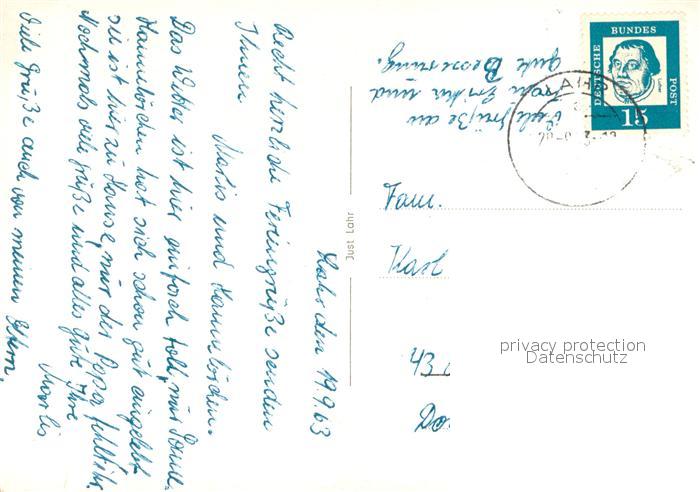 Lahr den 19.9.63
Recht herzliche Feriengrüße senden
Ihnen Marlis und Hannelörchen.
Das Wetter ist hier einfach toll, nur Sonne.
Hannelörchen hat sich schon gut eingelebt
sie ist hier zu Hause, nur der Papa fehlt ihr.
Nochmals viele Grüße und alles Gute Ihre
Marlis
Viele Grüße auch von meinen Eltern.
Viele Grüße an
Frau und
gute Besserung.
Just Lahr
DEUTSCHE
BUNDES
POST
Luther
15
Fam.
Karl
43
Do
privacy protection
Datenschutz